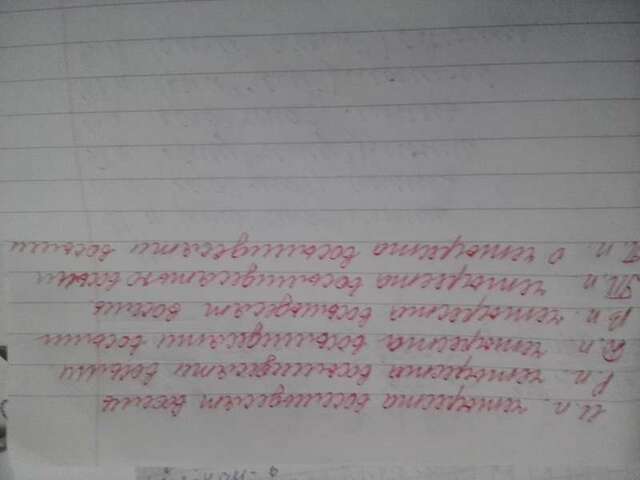 И.п. четыреста восемьдесят восемь
Р.п. четыреста восьмидесяти восьми
Д.п. четыреста восьмидесяти восьми
В.п. четыреста восьмьдесят восемь
Т.п. четыреста восьмидесятью восьми
П.п. о четыреста восьмидесяти восьми